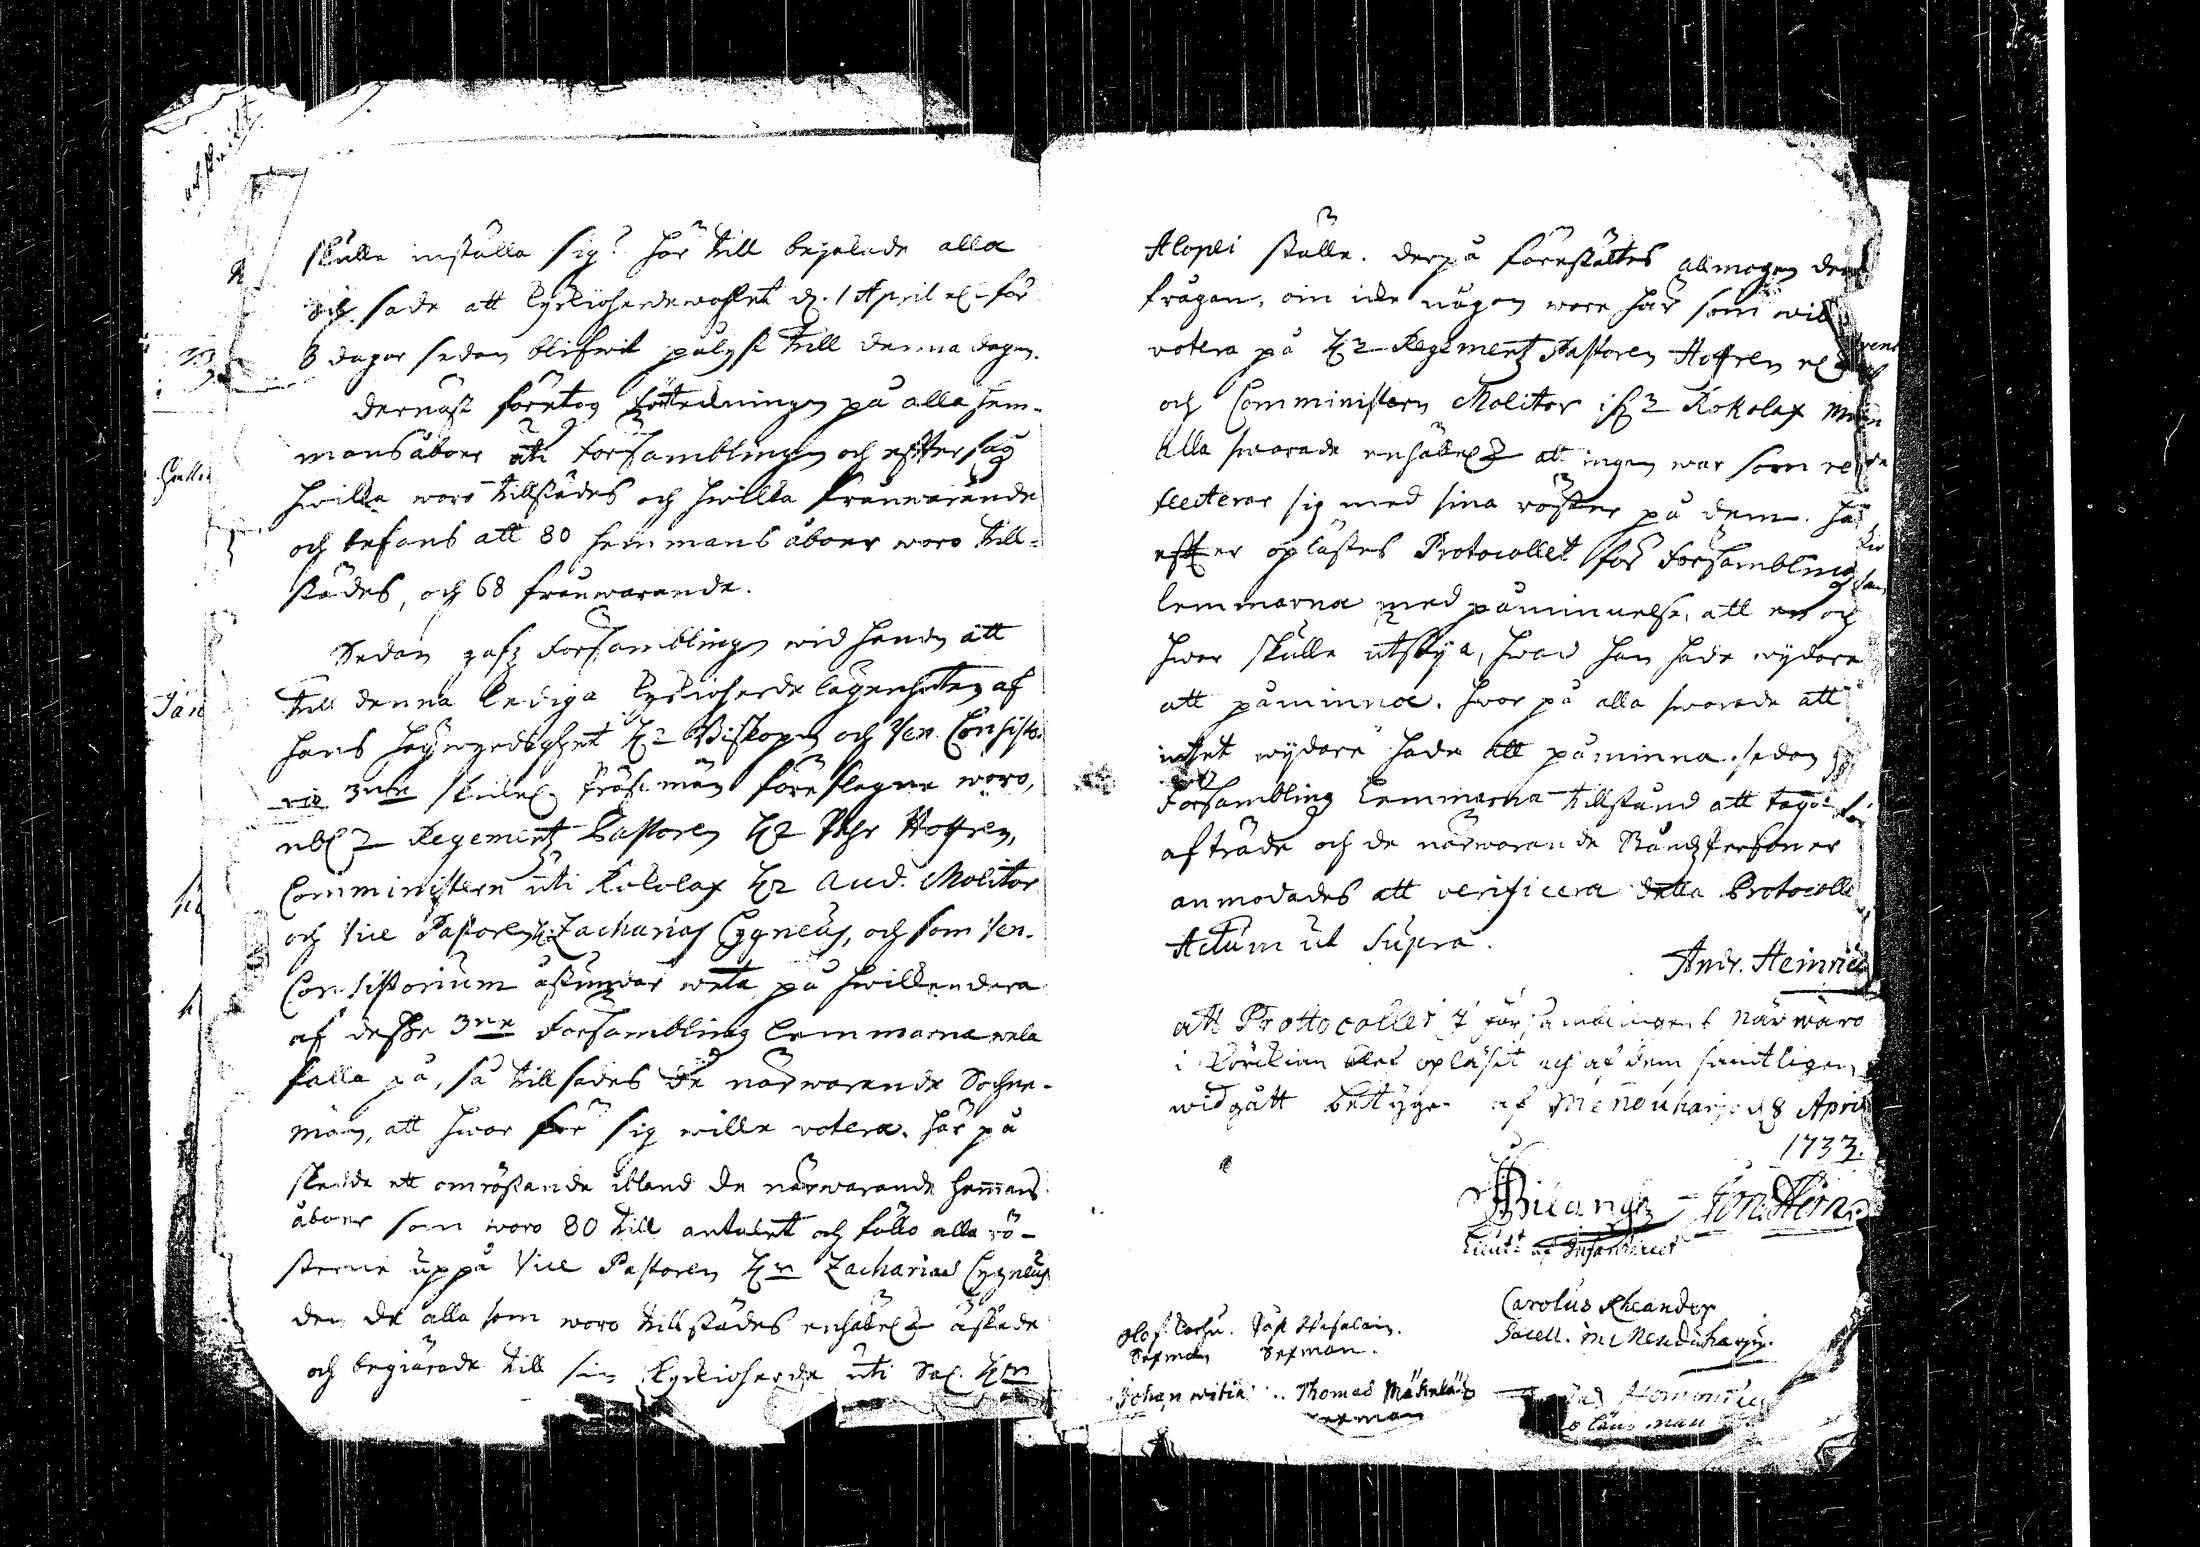 skulle inställa sig? här till bejakade alla
och sade att kyrkioherdewahlet d. 1 April el. för
8 dagar sedan blifwit pålyst till denna dagen.
dernäst företog förrättningen på alla hem-
mans åboer uti Församblingen och efftersåg
hwilka woro tillstädes och hwilka frånwarande
och befans att 80 hemmans åboer woro till-
städes, och 68 frånwarande.
Sedan gafs Församblingen wid handen att
till denna lediga kyrkioherde lägenheten af
hans högwyrdighet Hr Biskopen och Ven. Consisto-
rio 3ne skickel. Präst män föreslagne woro,
nbl. Regements Pastoren Hr Pehr Hoffren,
Comministern uti Kokolax Hr And. Molitor
och Vice Pastoren H. Zacharias Cygneus, och som Ven.
Consistorium åstundar weta på hwilkendera
af desse 3ne Församblings lemmarna wela
falla på, så tillsades de närwarande Sochne-
män, att hwar för sig wille votera. här på
skedde ett omröstande ibland de närwarande hemmans
åboer som woro 80 till antalet och föllo alla rö-
sterne uppå Vice Pastoren Hrn Zacharias Cygneus
den de alla som woro tillstädes enhällel. äskade
och begiärade till sin kyrkioherde uti Sal. Hrn
Alopei ställe. derpå förestältes allmogen den
frågan, om icke någon wore här som wille
votera på Hr Regements Pastoren Hoffren
och Comministern Molitor if. Kokolax
Alla swarade enhällel. att ingen war som re
flecterar sig med sina röster på dem. här
effter oplästes Protocollet för Församblings
lemmarna med påminnelse, att en och
hwar skulle utsäya, hwad han hade wydare
att påminna. hwar på alla swarade att
intet wydare hade att påminna. sedan
Församblings lemmarna tillstånd att taga
afträde och de närwarande Stånds Personer
anmodades att verificera detta Protocoll
Actum ut supra.
Andr. Heinric
att Protocollet i församblingens närwaro
i Körkian blef opläsit och af dem samtligen
widgått betyger af Menduharju d 8 April
1733.
Bilangh
Lieut. af Infanteriet
Carolus Rheander
Sacell. in Menduharju.
Olof
Sexman
Sexman.
Johan Thomas
Sexman
länsman